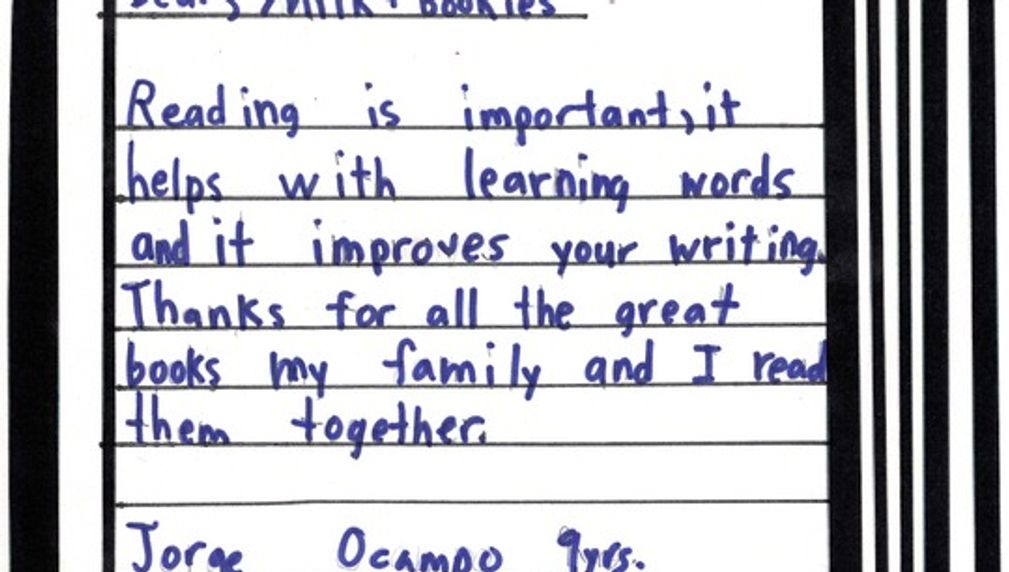 Dear, Milk + Bookies
Reading is important, it
helps with learning words
and it improves your writing.
Thanks for all the great
books my family and I read
them together.
Jorge Ocampo 9yrs.